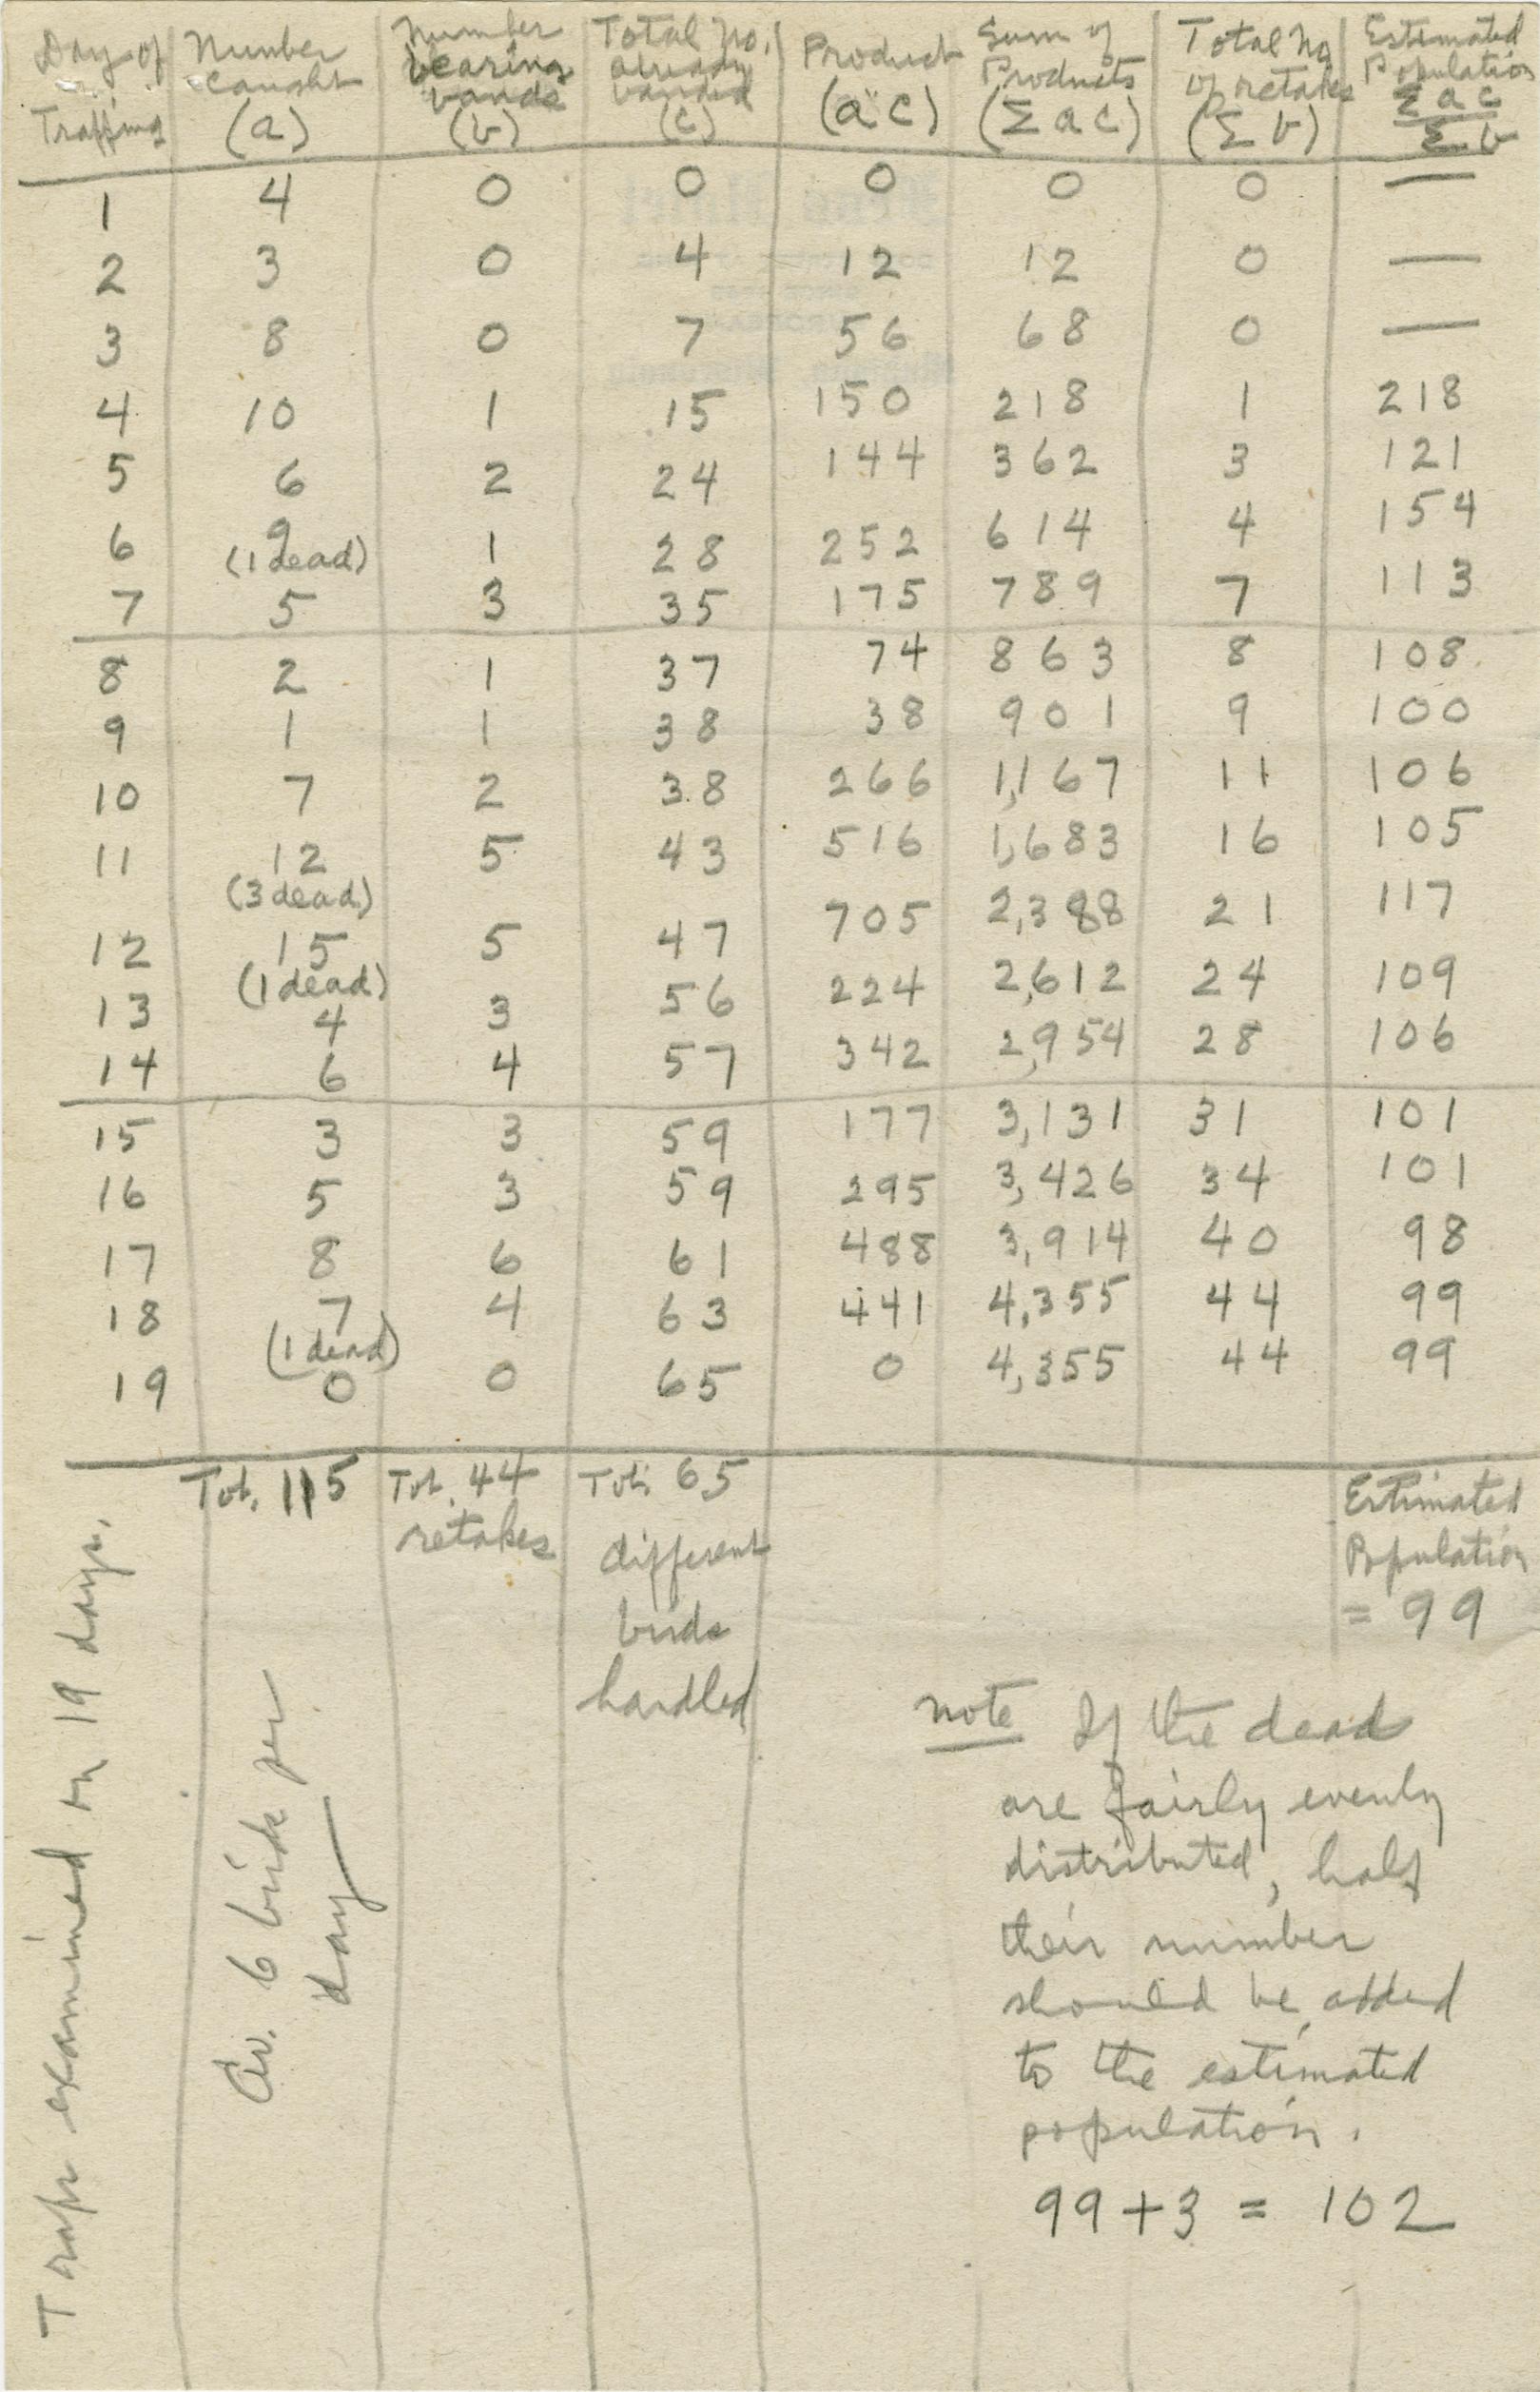 Day of Trapping | Number Caught (a) | Number bearing bands (b) | Total No. already banded (c) | Product (ac) | Sum of Products (Σac) | Total No. of retakes (Σb) | Estimated Population Σac / Σb
1 | 4 | 0 | 0 | 0 | 0 | 0 | —
2 | 3 | 0 | 4 | 12 | 12 | 0 | —
3 | 8 | 0 | 7 | 56 | 68 | 0 | —
4 | 10 | 1 | 15 | 150 | 218 | 1 | 218
5 | 6 | 2 | 24 | 144 | 362 | 3 | 121
6 | 9 (1 dead) | 1 | 28 | 252 | 614 | 4 | 154
7 | 5 | 3 | 35 | 175 | 789 | 7 | 113
8 | 2 | 1 | 37 | 74 | 863 | 8 | 108
9 | 1 | 1 | 38 | 38 | 901 | 9 | 100
10 | 7 | 2 | 38 | 266 | 1,167 | 11 | 106
11 | 12 (3 dead) | 5 | 43 | 516 | 1,683 | 16 | 105
12 | 15 (1 dead) | 5 | 47 | 705 | 2,388 | 21 | 117
13 | 4 | 3 | 56 | 224 | 2,612 | 24 | 109
14 | 6 | 4 | 57 | 342 | 2,954 | 28 | 106
15 | 3 | 3 | 59 | 177 | 3,131 | 31 | 101
16 | 5 | 3 | 59 | 295 | 3,426 | 34 | 101
17 | 8 | 6 | 61 | 488 | 3,914 | 40 | 98
18 | 7 (1 dead) | 4 | 63 | 441 | 4,355 | 44 | 99
19 | 0 | 0 | 65 | 0 | 4,355 | 44 | 99
Tot. 115 | Tot. 44 retakes | Tot. 65 different birds handled | Estimated Population = 99
Traps examined on 19 days.
Av. 6 birds per
day
Note If the dead
are fairly evenly
distributed, half
their number
should be added
to the estimated
population.
99 + 3 = 102